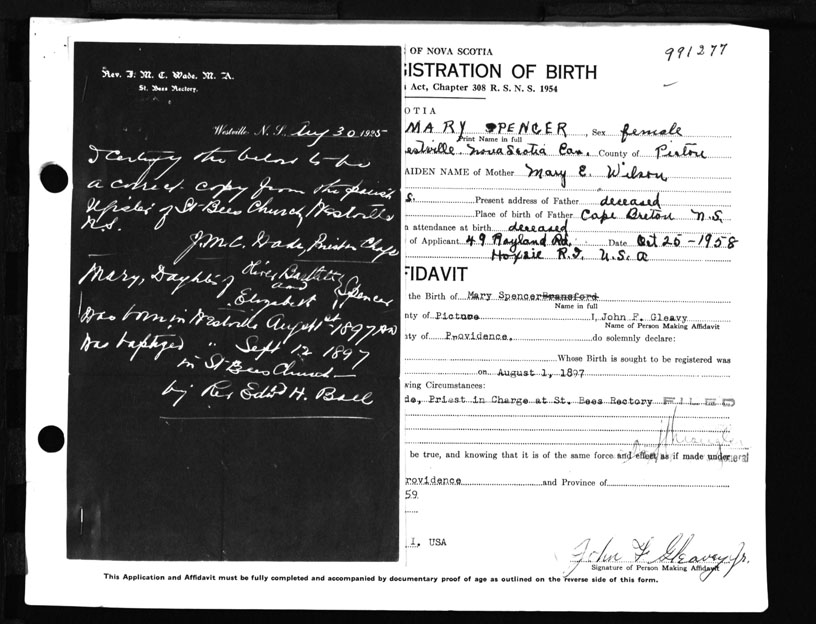 Rev. J. M. C. Wade, M. A.
St. Bees Rectory.
Westville, N. S., Aug 30 1925
I certify the below to be
a correct copy from the parish
Register of St Bees Church, Westville
N.S.
J.M.C. Wade, Priest in Chge
Mary, Daughter of
and
Elizabeth
Spencer
was born in Westville August 1st 1897 and
was baptized " Sept 12 1897
in St Bees Church
by Rev Edwd H. Ball
OF NOVA SCOTIA
991277
ISTRATION OF BIRTH
Act, Chapter 308 R. S. N. S. 1954
OTIA
MARY SPENCER, Sex female
Print Name in full
estville, Nova Scotia Can. County of Pictou
AIDEN NAME of Mother Mary E. Wilson
S. Present address of Father deceased
Place of birth of Father Cape Breton N.S.
n attendance at birth deceased
of Applicant 49 Rayland Rd. Date Oct 25-1958
Hoxsie R.I. U.S.A
FIDAVIT
the Birth of Mary Spencer Bransford
Name in full
nty of Picture I, John F. Gleavy
Name of Person Making Affidavit
nty of Providence. do solemnly declare:
Whose Birth is sought to be registered was
on August 1, 1897
wing Circumstances:
de, Priest in Charge at St. Bees Rectory FILED
be true, and knowing that it is of the same force and effect as if made under
eral
rovidence and Province of
59
I, USA
John F Gleavy Jr.
Signature of Person Making Affidavit
This Application and Affidavit must be fully completed and accompanied by documentary proof of age as outlined on the reverse side of this form.